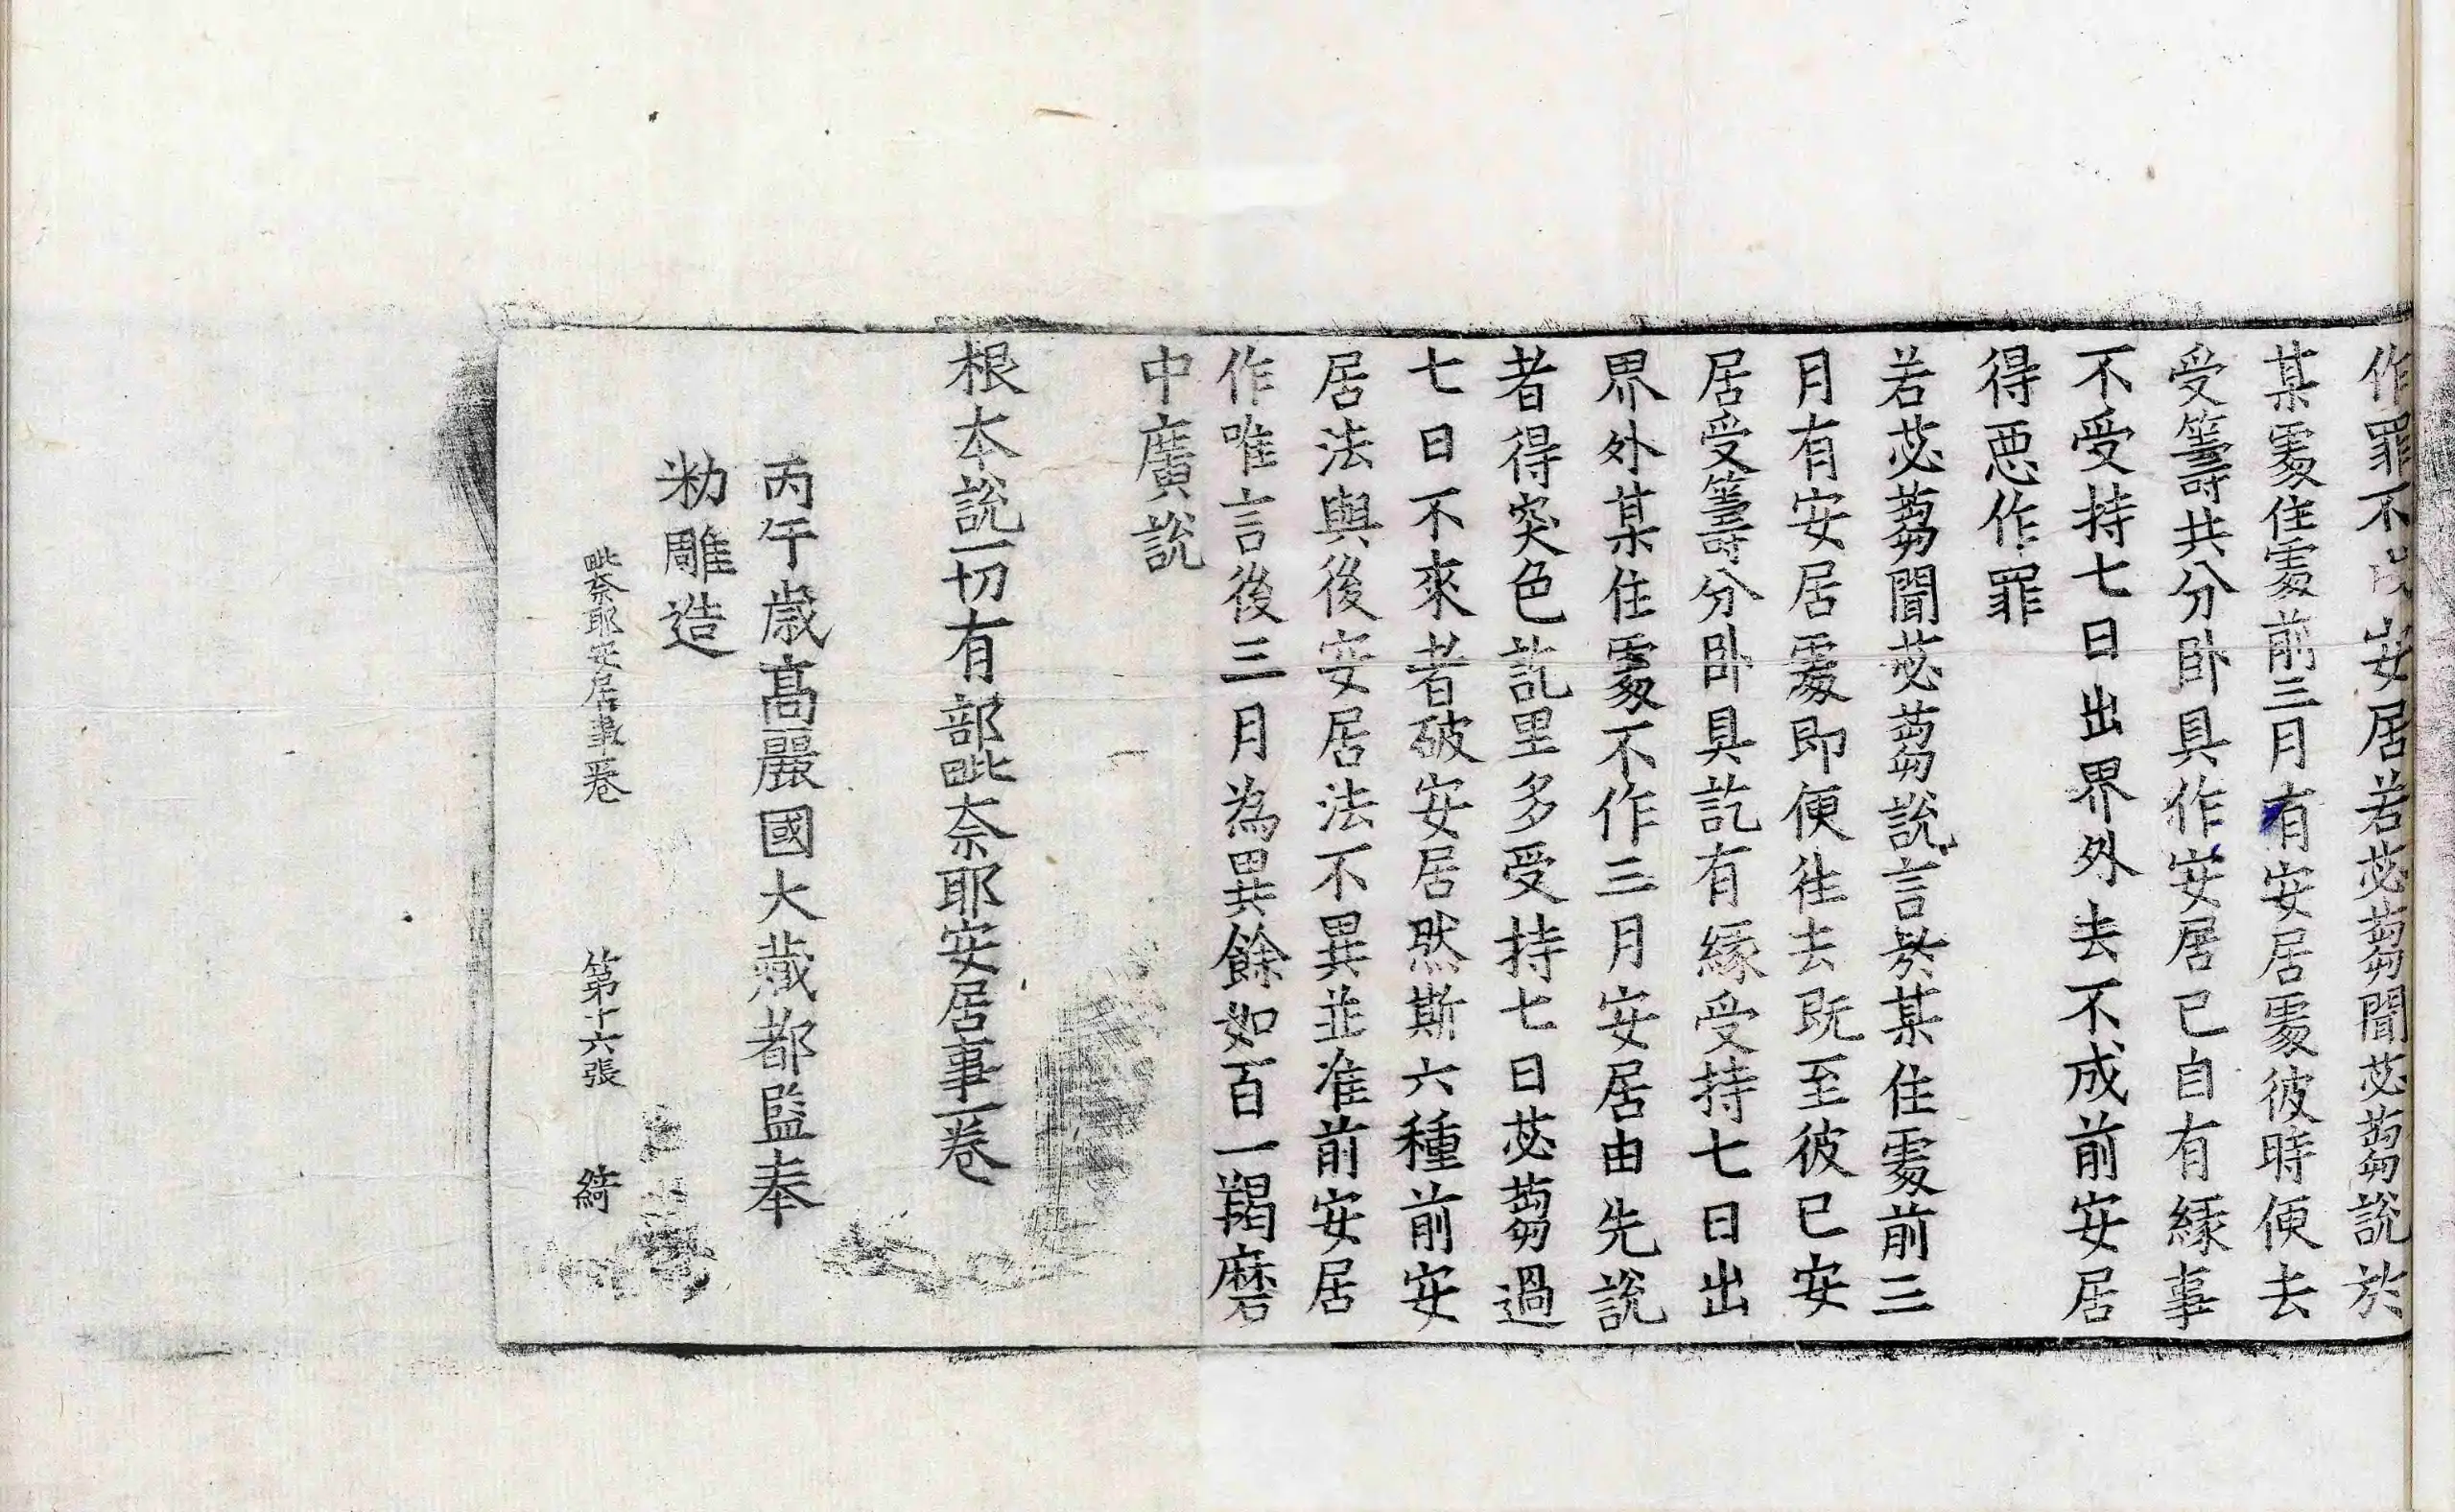 作罪不成安居若苾蒭聞苾蒭說於
某䖏住䖏前三月有安居䖏彼時便去
受籌共分卧具作安居已自有緣事
不受持七日出界外去不成前安居
得惡作罪
若苾蒭聞苾蒭說言於某住䖏前三
月有安居䖏即便往去既至彼已安
居受籌分卧具訖有緣受持七日出
界外某住䖏不作三月安居由先說
者得突色訖里多受持七日苾蒭過
七日不來者破安居然斯六種前安
居法與後安居法不異並准前安居
作唯言後三月為異餘如百一羯磨
中廣說
根本說一切有部毗奈耶安居事一卷
丙午歲高麗國大藏都監奉
勑雕造
毗奈耶安居事一卷 第十六張 綺